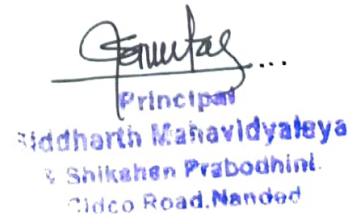 Principal
Siddharth Mahavidyalaya
& Shikshan Prabodhini.
Cidco Road.Nanded